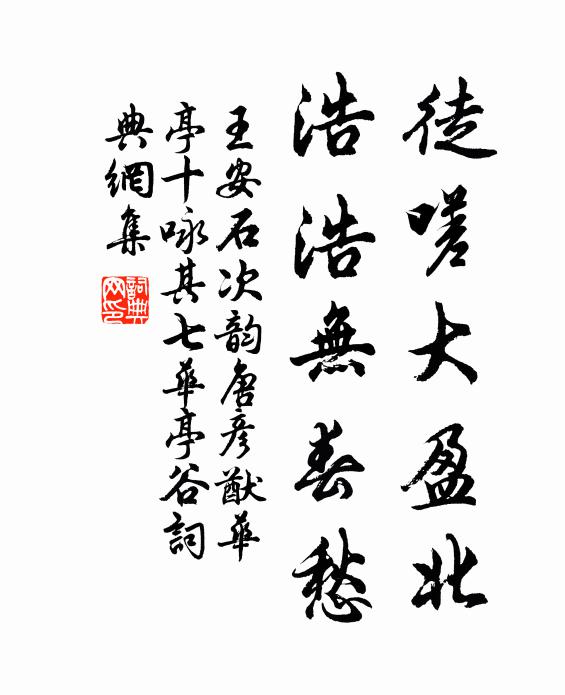 徒嗟大盈北
浩浩無春愁
王安石次韵唐彦猷華
亭十咏其七華亭谷詞
典網集
詞典網印